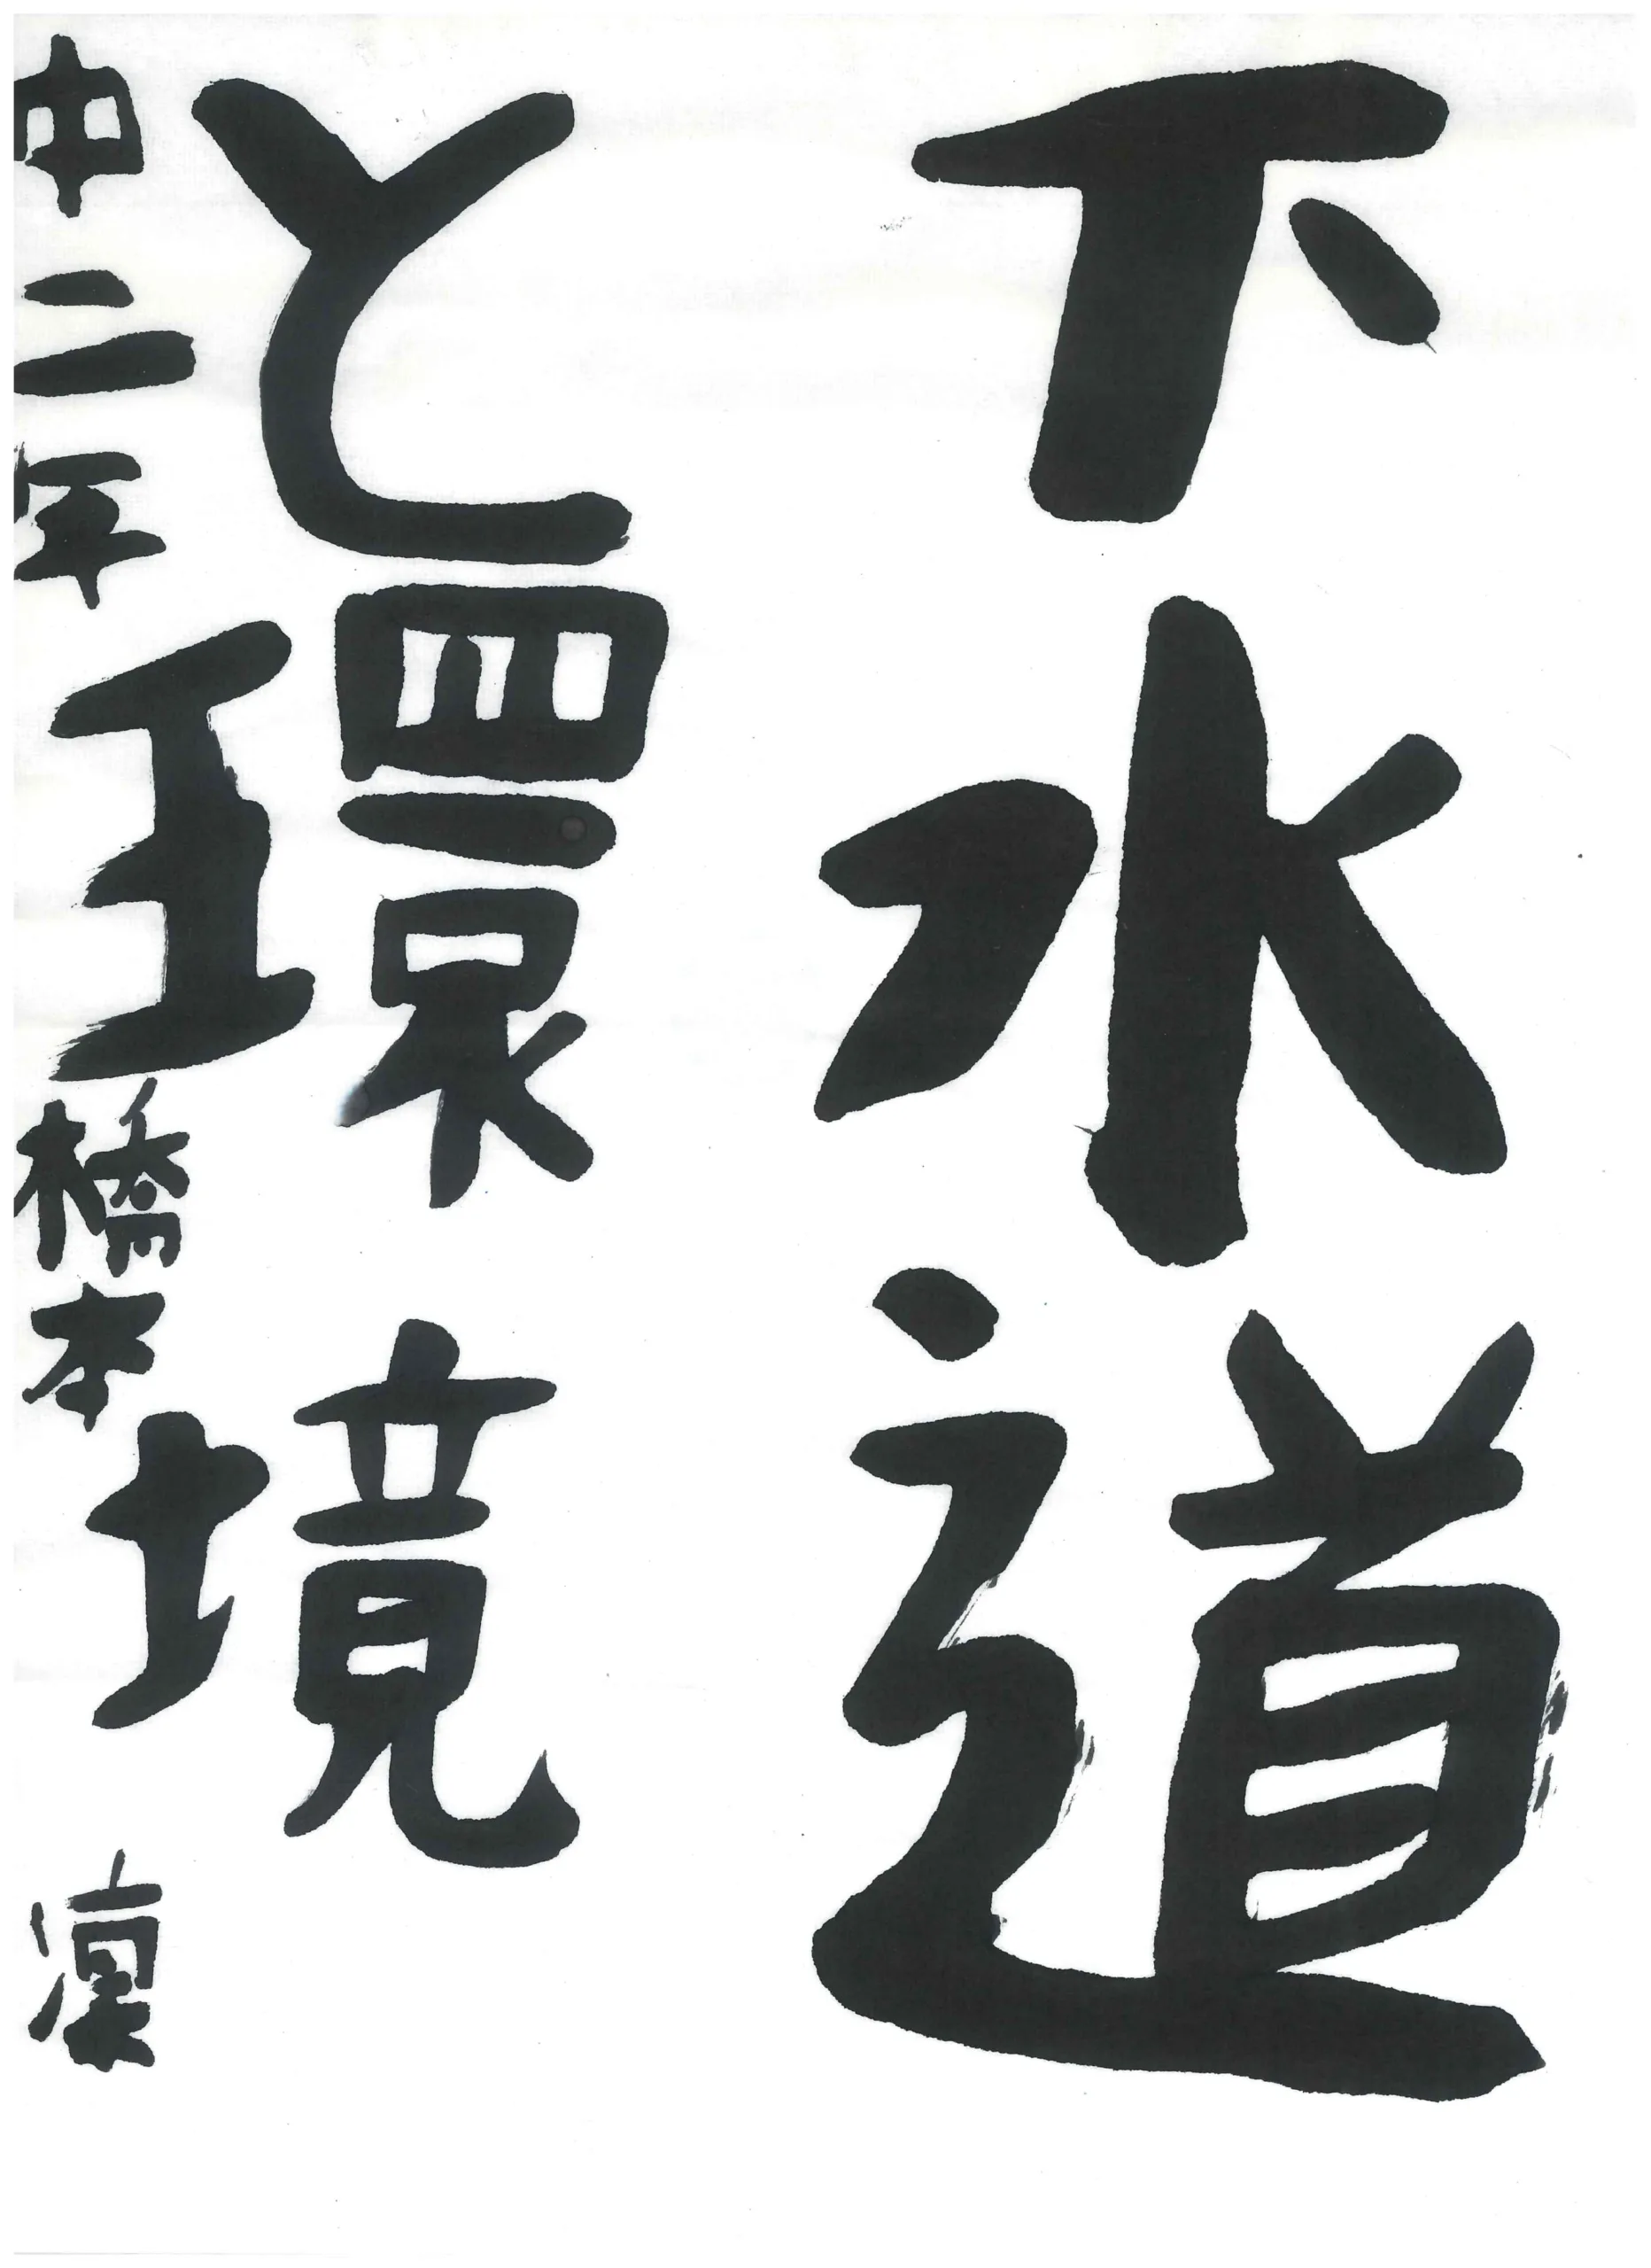 下水道
と環境
中二年 橋本 凛